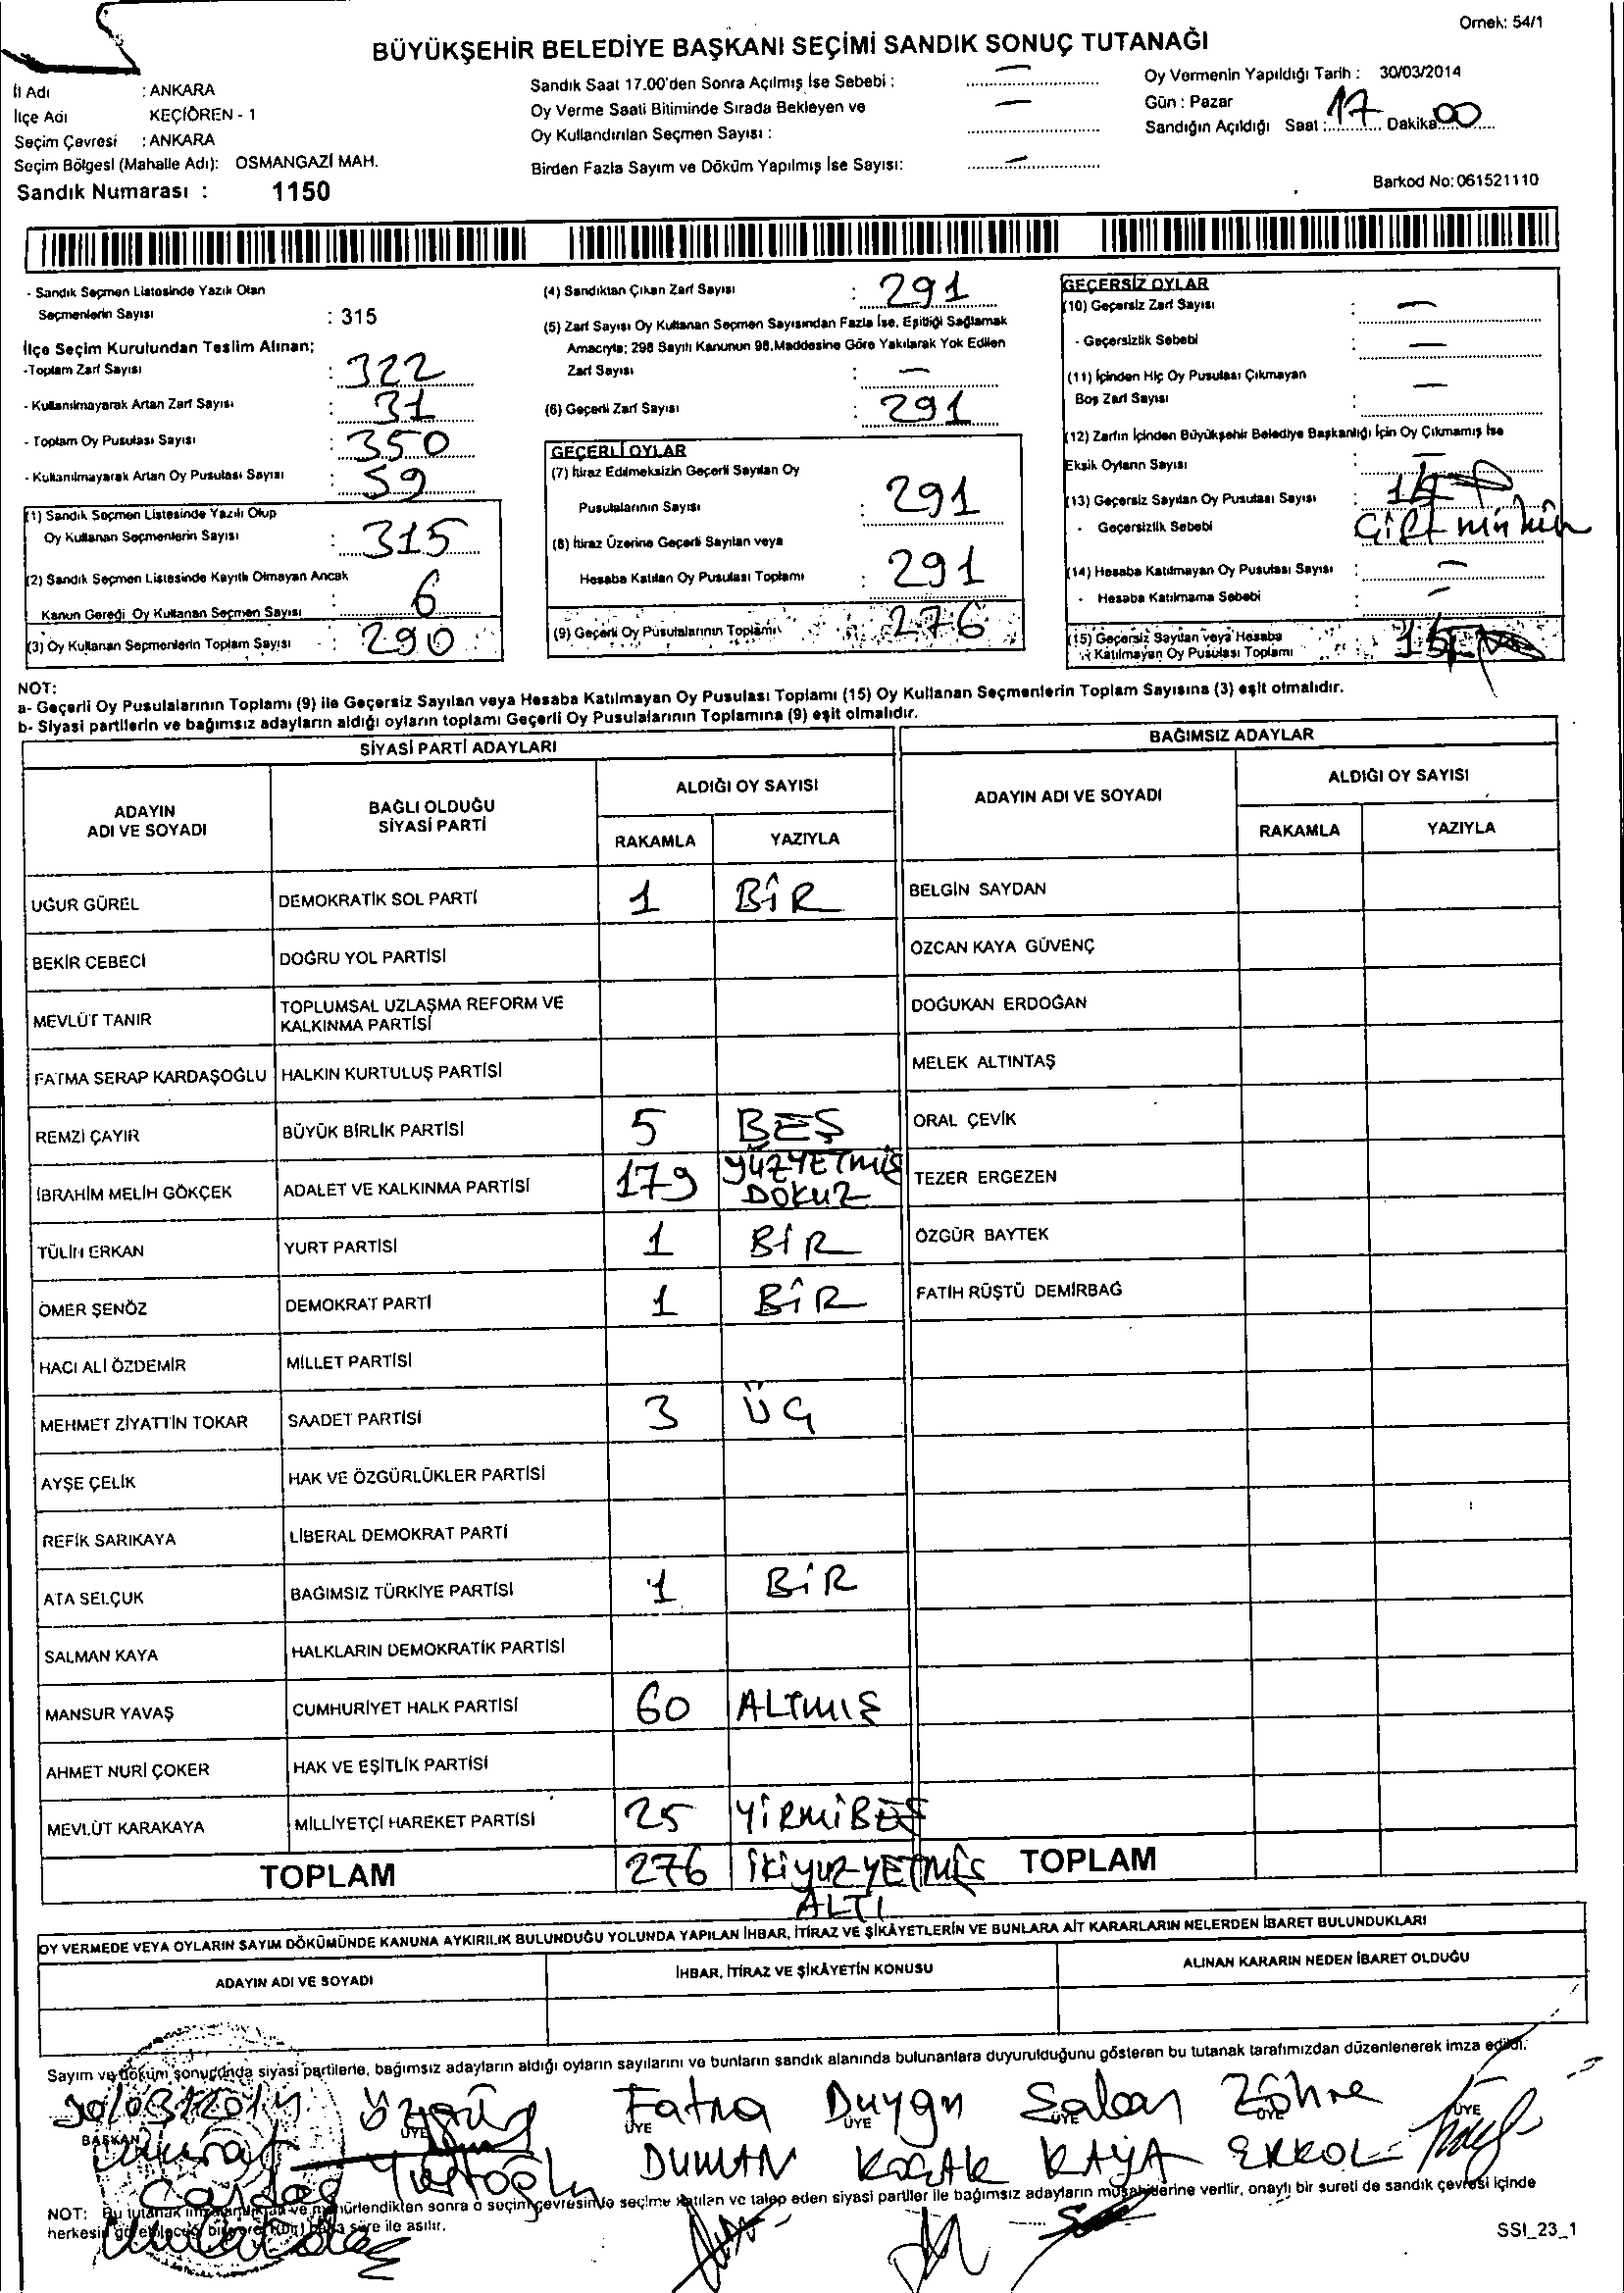 Örnek: 54/1
BÜYÜKŞEHİR BELEDİYE BAŞKANI SEÇİMİ SANDIK SONUÇ TUTANAĞI
İl Adı : ANKARA
İlçe Adı KEÇİÖREN - 1
Seçim Çevresi : ANKARA
Seçim Bölgesi (Mahalle Adı): OSMANGAZİ MAH.
Sandık Numarası : 1150
Sandık Saat 17.00'den Sonra Açılmış İse Sebebi : —
Oy Verme Saati Bitiminde Sırada Bekleyen ve
Oy Kullandırılan Seçmen Sayısı : —
Birden Fazla Sayım ve Döküm Yapılmış İse Sayısı: —
Oy Vermenin Yapıldığı Tarih : 30/03/2014
Gün : Pazar
Sandığın Açıldığı Saat : 17 Dakika 00
Barkod No: 061521110
- Sandık Seçmen Listesinde Yazılı Olan
Seçmenlerin Sayısı : 315
İlçe Seçim Kurulundan Teslim Alınan;
-Toplam Zarf Sayısı : 322
- Kullanılmayarak Artan Zarf Sayısı : 31
- Toplam Oy Pusulası Sayısı : 350
- Kullanılmayarak Artan Oy Pusulası Sayısı : 59
(1) Sandık Seçmen Listesinde Yazılı Olup
Oy Kullanan Seçmenlerin Sayısı : 315
(2) Sandık Seçmen Listesinde Kayıtlı Olmayan Ancak
Kanun Gereği Oy Kullanan Seçmen Sayısı : 6
(3) Oy Kullanan Seçmenlerin Toplam Sayısı : 290
(4) Sandıktan Çıkan Zarf Sayısı : 291
(5) Zarf Sayısı Oy Kullanan Seçmen Sayısından Fazla İse, Eşitliği Sağlamak
Amacıyla; 298 Sayılı Kanunun 98.Maddesine Göre Yakılarak Yok Edilen
Zarf Sayısı : —
(6) Geçerli Zarf Sayısı : 291
GEÇERLİ OYLAR
(7) İtiraz Edilmeksizin Geçerli Sayılan Oy
Pusulalarının Sayısı : 291
(8) İtiraz Üzerine Geçerli Sayılan veya
Hesaba Katılan Oy Pusulası Toplamı : 291
(9) Geçerli Oy Pusulalarının Toplamı : 276
GEÇERSİZ OYLAR
(10) Geçersiz Zarf Sayısı : —
- Geçersizlik Sebebi : —
(11) İçinden Hiç Oy Pusulası Çıkmayan
Boş Zarf Sayısı : —
(12) Zarfın İçinden Büyükşehir Belediye Başkanlığı İçin Oy Çıkmamış İse
Eksik Oyların Sayısı : —
(13) Geçersiz Sayılan Oy Pusulası Sayısı :
- Geçersizlik Sebebi
(14) Hesaba Katılmayan Oy Pusulası Sayısı : —
- Hesaba Katılmama Sebebi —
(15) Geçersiz Sayılan veya Hesaba
Katılmayan Oy Pusulası Toplamı :
NOT:
a- Geçerli Oy Pusulalarının Toplamı (9) ile Geçersiz Sayılan veya Hesaba Katılmayan Oy Pusulası Toplamı (15) Oy Kullanan Seçmenlerin Toplam Sayısına (3) eşit olmalıdır.
b- Siyasi partilerin ve bağımsız adayların aldığı oyların toplamı Geçerli Oy Pusulalarının Toplamına (9) eşit olmalıdır.
SİYASİ PARTİ ADAYLARI
BAĞIMSIZ ADAYLAR
ADAYIN ADI VE SOYADI
BAĞLI OLDUĞU SİYASİ PARTİ
ALDIĞI OY SAYISI
RAKAMLA YAZIYLA
ADAYIN ADI VE SOYADI
ALDIĞI OY SAYISI
RAKAMLA YAZIYLA
UĞUR GÜREL DEMOKRATİK SOL PARTİ 1 BİR BELGİN SAYDAN
BEKİR CEBECİ DOĞRU YOL PARTİSİ ÖZCAN KAYA GÜVENÇ
MEVLÜT TANIR TOPLUMSAL UZLAŞMA REFORM VE KALKINMA PARTİSİ DOĞUKAN ERDOĞAN
FATMA SERAP KARDAŞOĞLU HALKIN KURTULUŞ PARTİSİ MELEK ALTINTAŞ
REMZİ ÇAYIR BÜYÜK BİRLİK PARTİSİ 5 BEŞ ORAL ÇEVİK
İBRAHİM MELİH GÖKÇEK ADALET VE KALKINMA PARTİSİ 179 YÜZYETMİŞ DOKUZ TEZER ERGEZEN
TÜLİN ERKAN YURT PARTİSİ 1 BİR ÖZGÜR BAYTEK
ÖMER ŞENÖZ DEMOKRAT PARTİ 1 BİR FATİH RÜŞTÜ DEMİRBAĞ
HACI ALİ ÖZDEMİR MİLLET PARTİSİ
MEHMET ZİYATTİN TOKAR SAADET PARTİSİ 3 ÜÇ
AYŞE ÇELİK HAK VE ÖZGÜRLÜKLER PARTİSİ
REFİK SARIKAYA LİBERAL DEMOKRAT PARTİ
ATA SELÇUK BAĞIMSIZ TÜRKİYE PARTİSİ 1 BİR
SALMAN KAYA HALKLARIN DEMOKRATİK PARTİSİ
MANSUR YAVAŞ CUMHURİYET HALK PARTİSİ 60 ALTMIŞ
AHMET NURİ ÇOKER HAK VE EŞİTLİK PARTİSİ
MEVLÜT KARAKAYA MİLLİYETÇİ HAREKET PARTİSİ 25 YİRMİBEŞ
TOPLAM 276 İKİYÜZYETMİŞ ALTI TOPLAM
OY VERMEDE VEYA OYLARIN SAYIM DÖKÜMÜNDE KANUNA AYKIRILIK BULUNDUĞU YOLUNDA YAPILAN İHBAR, İTİRAZ VE ŞİKÂYETLERİN VE BUNLARA AİT KARARLARIN NELERDEN İBARET BULUNDUKLARI
ADAYIN ADI VE SOYADI İHBAR, İTİRAZ VE ŞİKÂYETİN KONUSU ALINAN KARARIN NEDEN İBARET OLDUĞU
Sayım ve döküm sonucunda siyasi partilerle, bağımsız adayların aldığı oyların sayılarını ve bunların sandık alanında bulunanlara duyurulduğunu gösteren bu tutanak tarafımızdan düzenlenerek imza edildi.
30/03/2014 Özgür Fatma Duygu Şaban Zöhre
BAŞKAN ÜYE ÜYE ÜYE ÜYE ÜYE ÜYE
Murat DUMAN KOÇAK KAYA ERKOL
NOT: Bu tutanak imzalandıktan ve mühürlendikten sonra o seçim çevresinde seçime katılan ve talep eden siyasi partiler ile bağımsız adayların müşahitlerine verilir, onaylı bir sureti de sandık çevresi içinde
herkesin görebileceği bir yere (bir) hafta süre ile asılır.
SSI_23_1